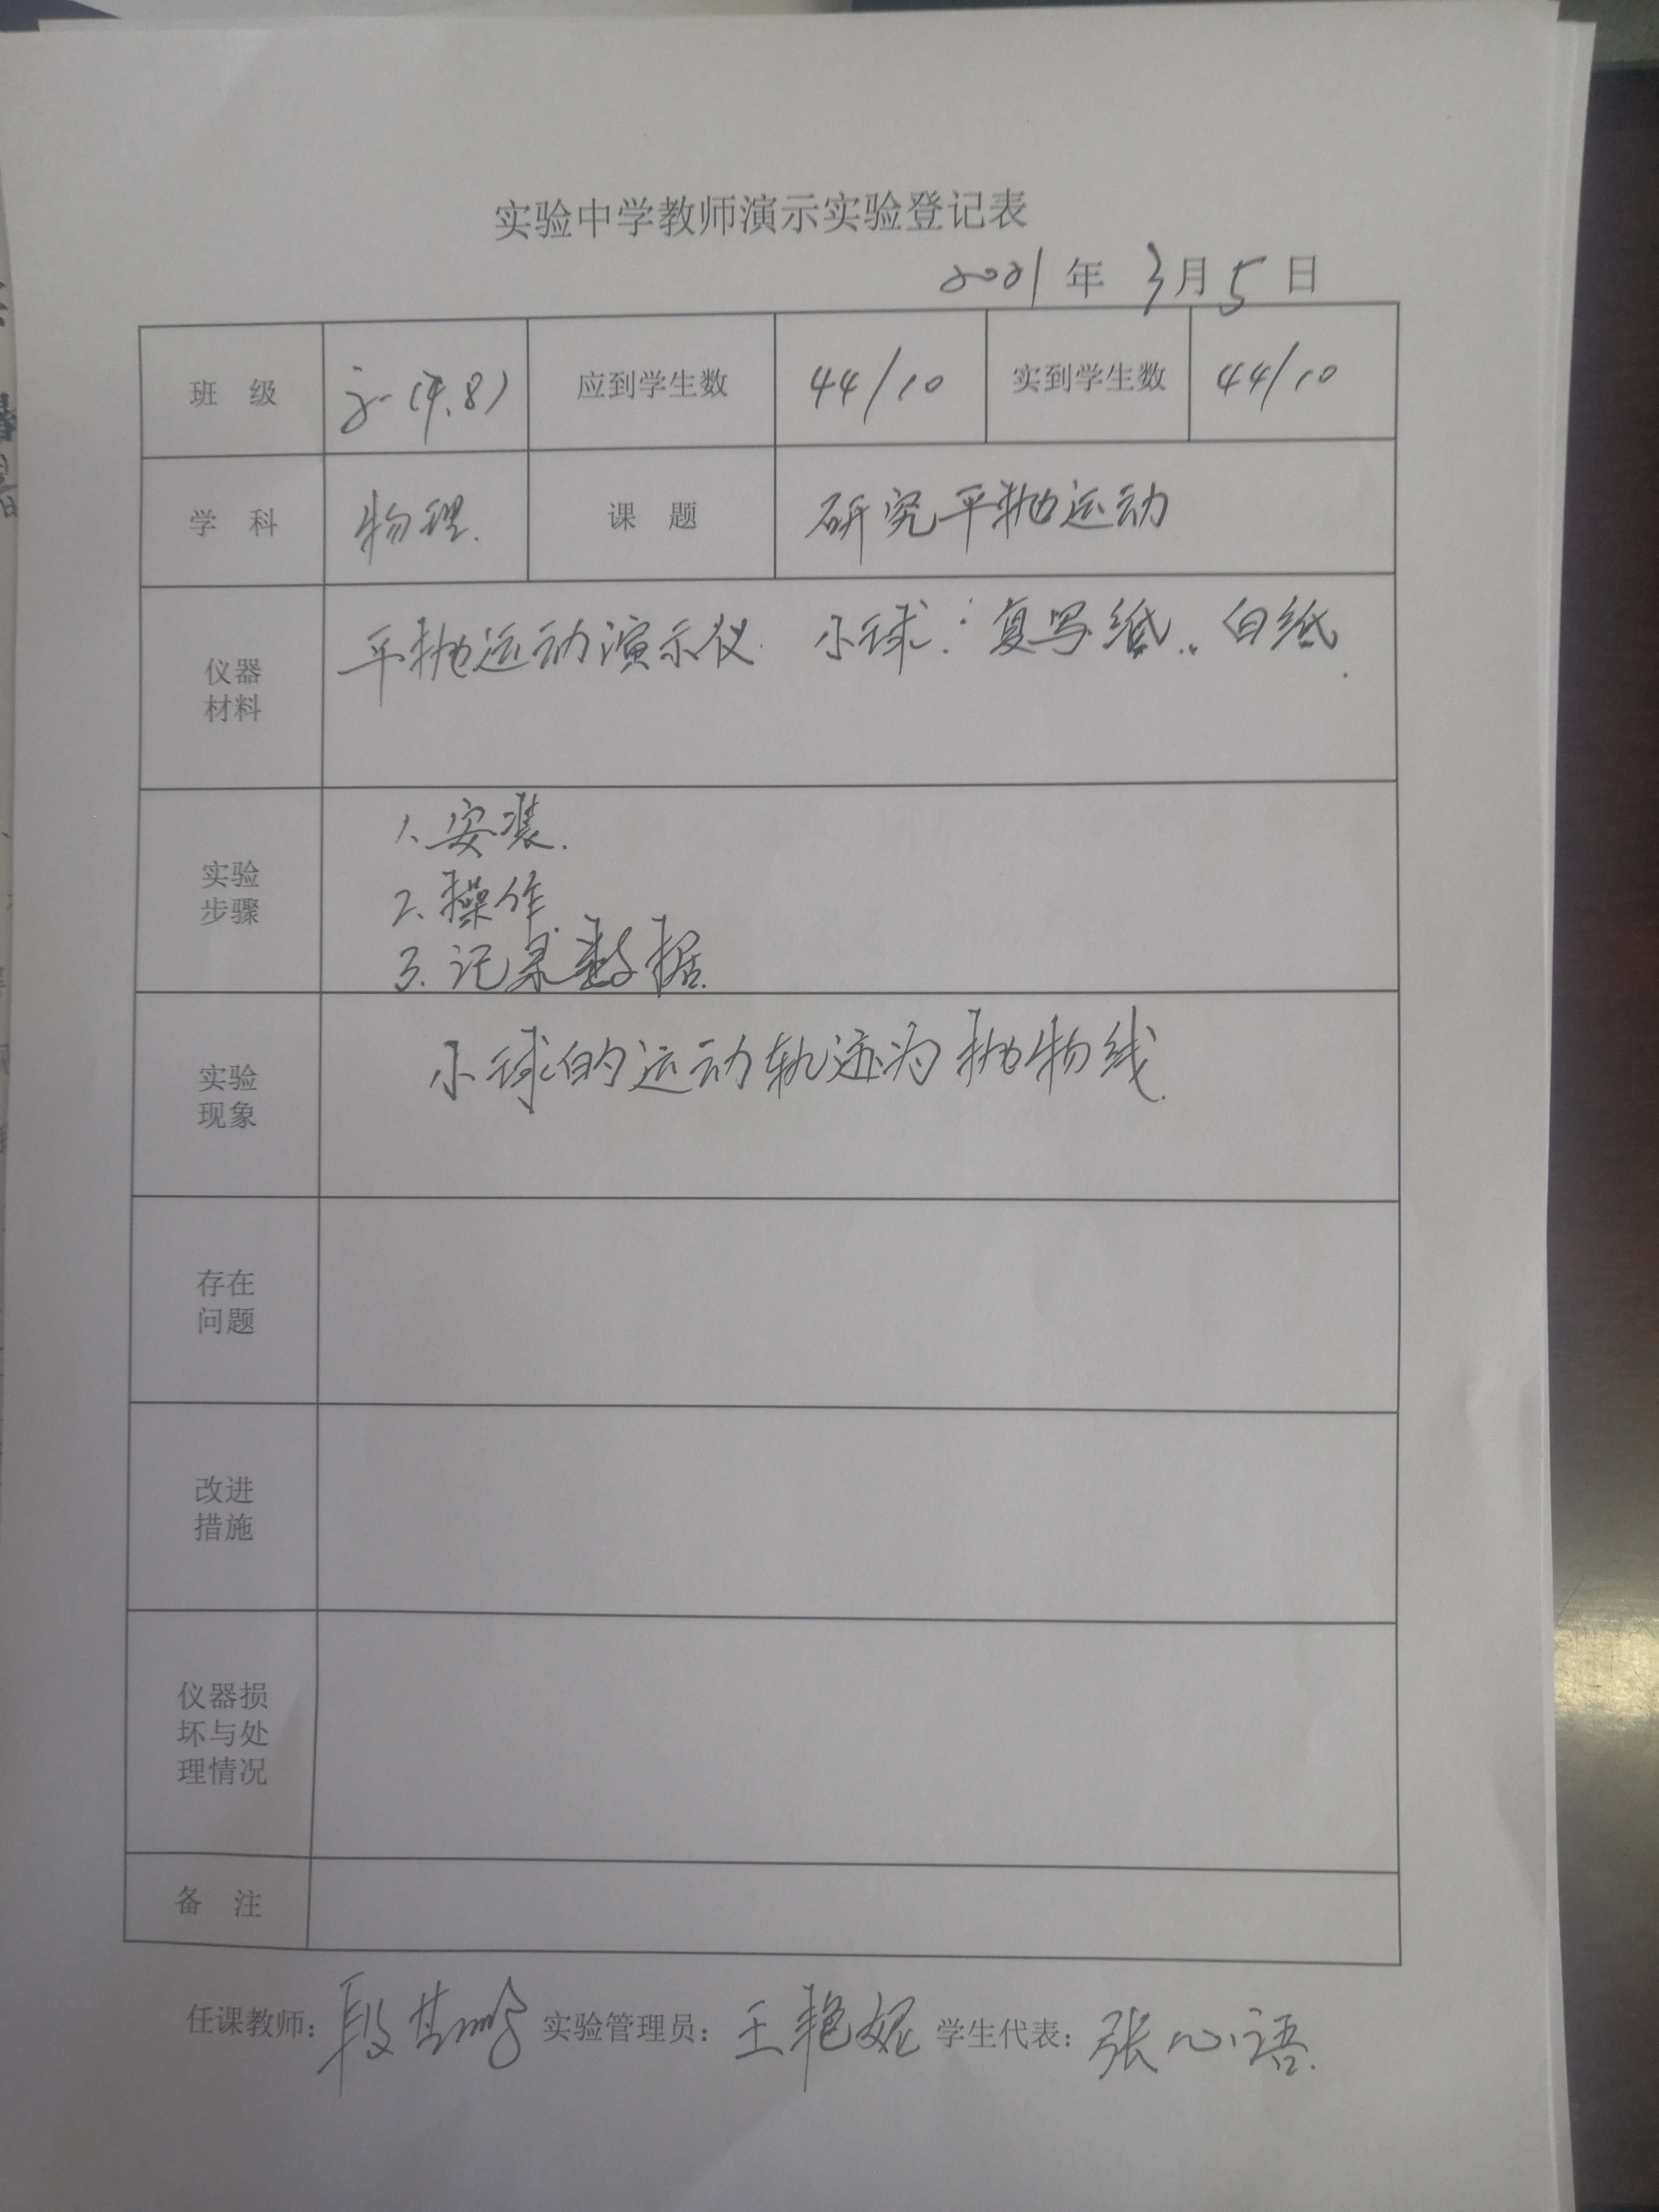 实验中学教师演示实验登记表
2021年 3月5日
班 级 (7.8) 应到学生数 44/10 实到学生数 44/10
学 科 物理. 课 题 研究平抛运动
仪器
材料
平抛运动演示仪. 小球. 复写纸. 白纸.
实验
步骤
1、安装.
2、操作.
3、记录数据.
实验
现象
小球的运动轨迹为抛物线.
存在
问题
改进
措施
仪器损
坏与处
理情况
备 注
任课教师：段 实验管理员：王艳妮 学生代表：张心语.